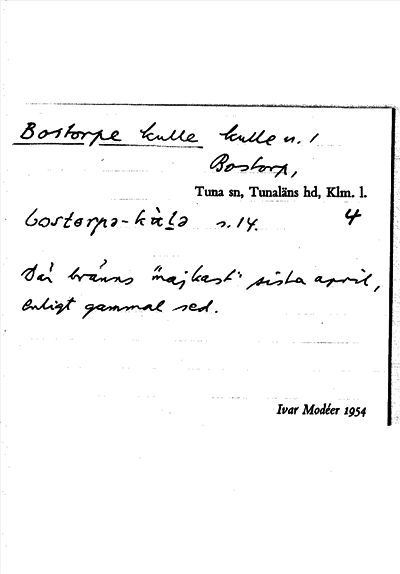 Bostorpe kulle kulle n. 1
Bostorp,
Tuna sn, Tunaläns hd, Klm. l.
bostorpə- s. 14. 4
Där bränns "majkast" sista april,
enligt gammal sed.
Ivar Modéer 1954